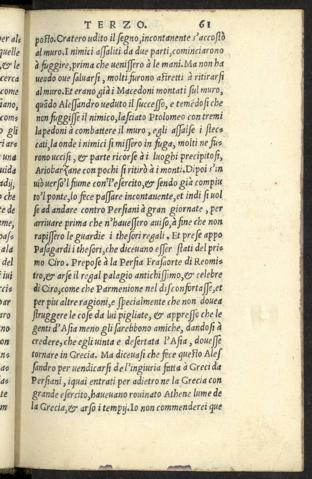 TERZO. 61
posto. Cratero udito il segno, incontanente s'accostò
al muro. I nimici assaliti da due parti, cominciarono
à fuggire, prima che uenissero à le mani. Ma non ha
uendo oue saluarsi, molti furono astretti à ritirarsi
al muro. Et erano già i Macedoni montati sul muro,
quãdo Alessandro ueduto il successo, e temẽdosi che
non fuggisse il nimico, lasciato Ptolomeo con tremi
la pedoni à combattere il muro, egli assalse i stec=
cati, la onde i nimici si missero in fuga, molti ne fu=
rono uccisi, & parte ricorse à i luoghi precipitosi,
Ariobarzane con pochi si ritirò à i monti. Dipoi s'in
uiò uerso'l fiume con l'esercito, & sendo già compiu
to'l ponte, lo fece passare incontanente, et indi si uol
se ad andare contro Persiani à gran giornate, per
arriuare prima che n'hauessero auiso, à fine che non
rapissero le guardie i thesori regali. Et prese appo
Pasagardi i thesori, che diceuano esser stati del prio
mo Ciro. Prepose à la Persia Frasaorte di Reomis
tro, & arse il regal palagio antichissimo, & celebre
di Ciro, come che Parmenione nel disconfortasse, et
per piu altre ragioni, e specialmente che non douea
struggere le cose da lui pigliate, & appresso che le
genti d'Asia meno gli sarebbono amiche, dandosi à
credere, che egli uinta e desertata l'Asia, douesse
tornare in Grecia. Ma diceuasi che fece questo Ales
sandro per uendicarsi de l'ingiuria fatta à Greci da
Persiani, iquai entrati per adietro ne la Grecia con
grande esercito, haueuano rouinato Athene lume de
la Grecia, & arso i tempij. Io non commenderei que